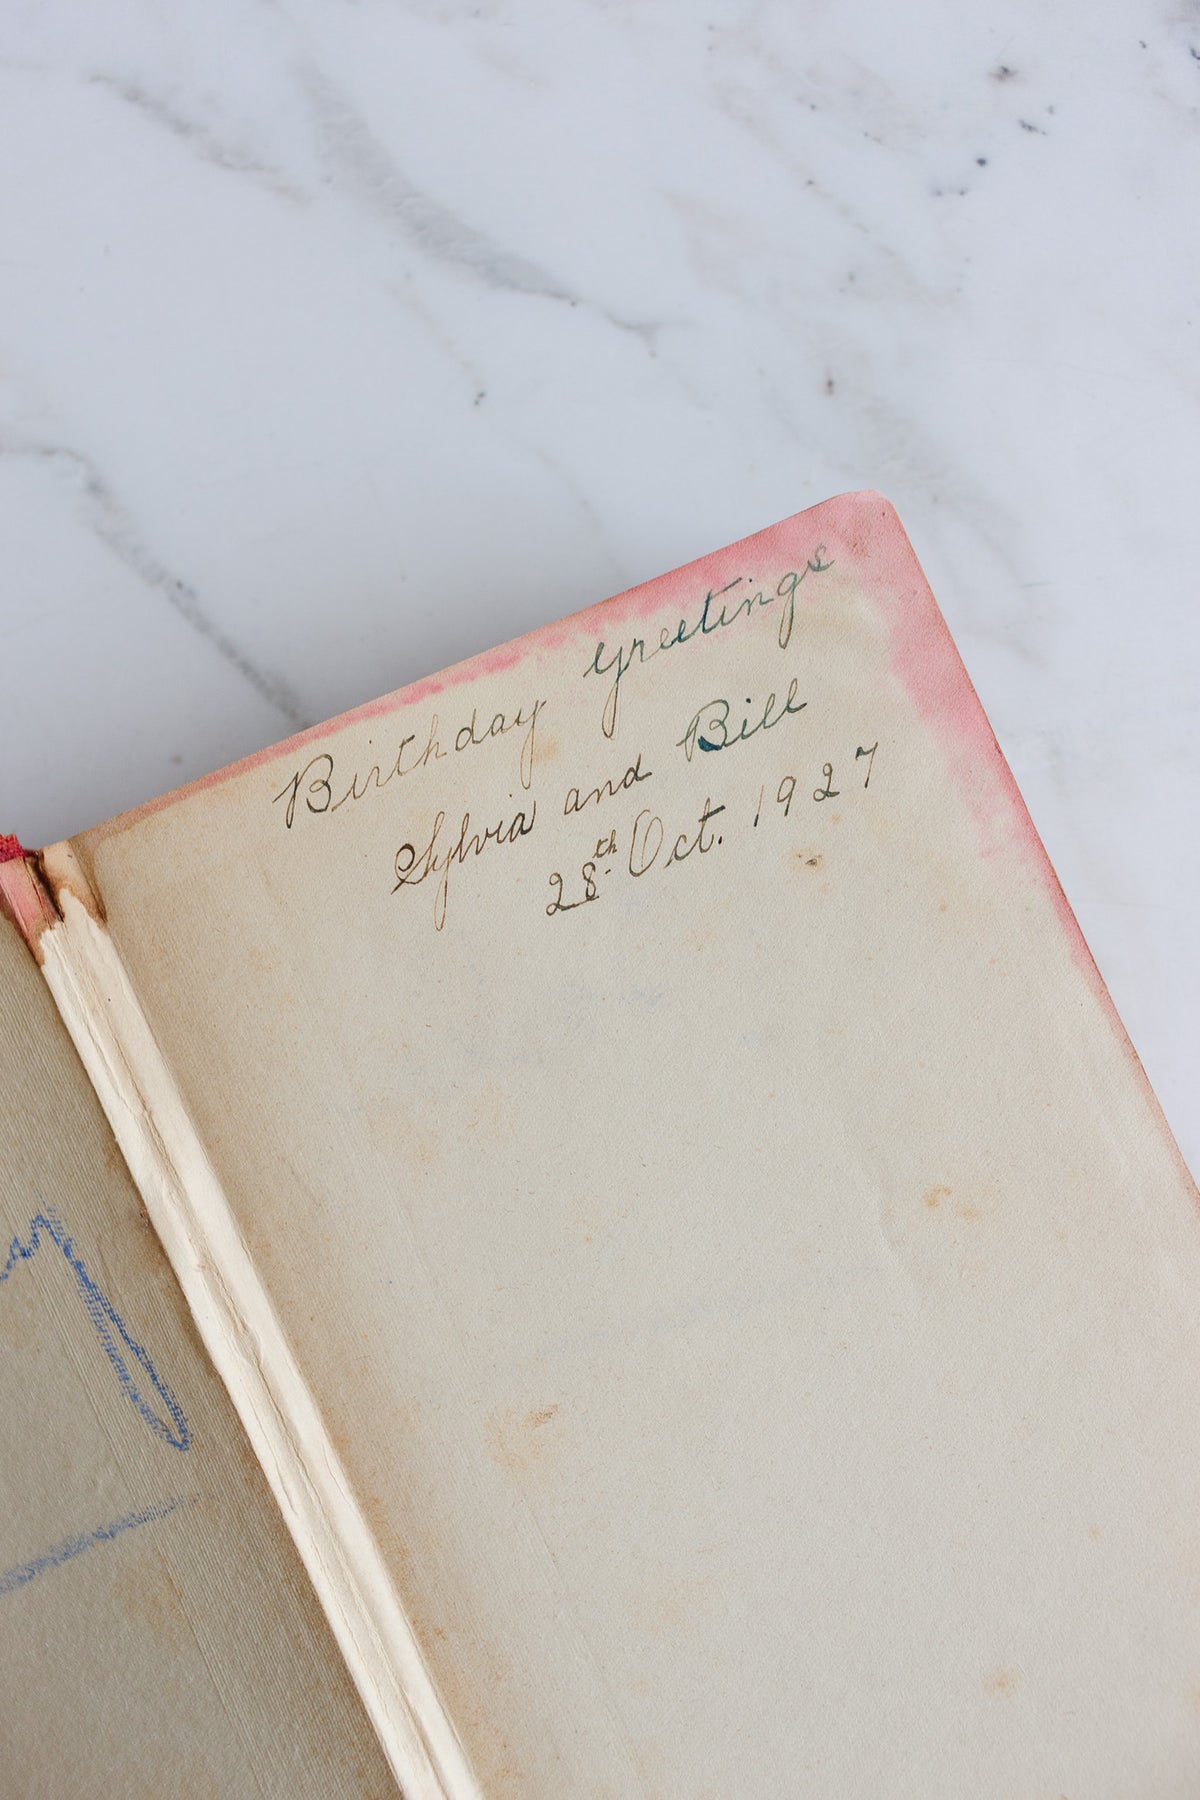 Birthday Greetings
Sylvia and Bill
28th Oct. 1927